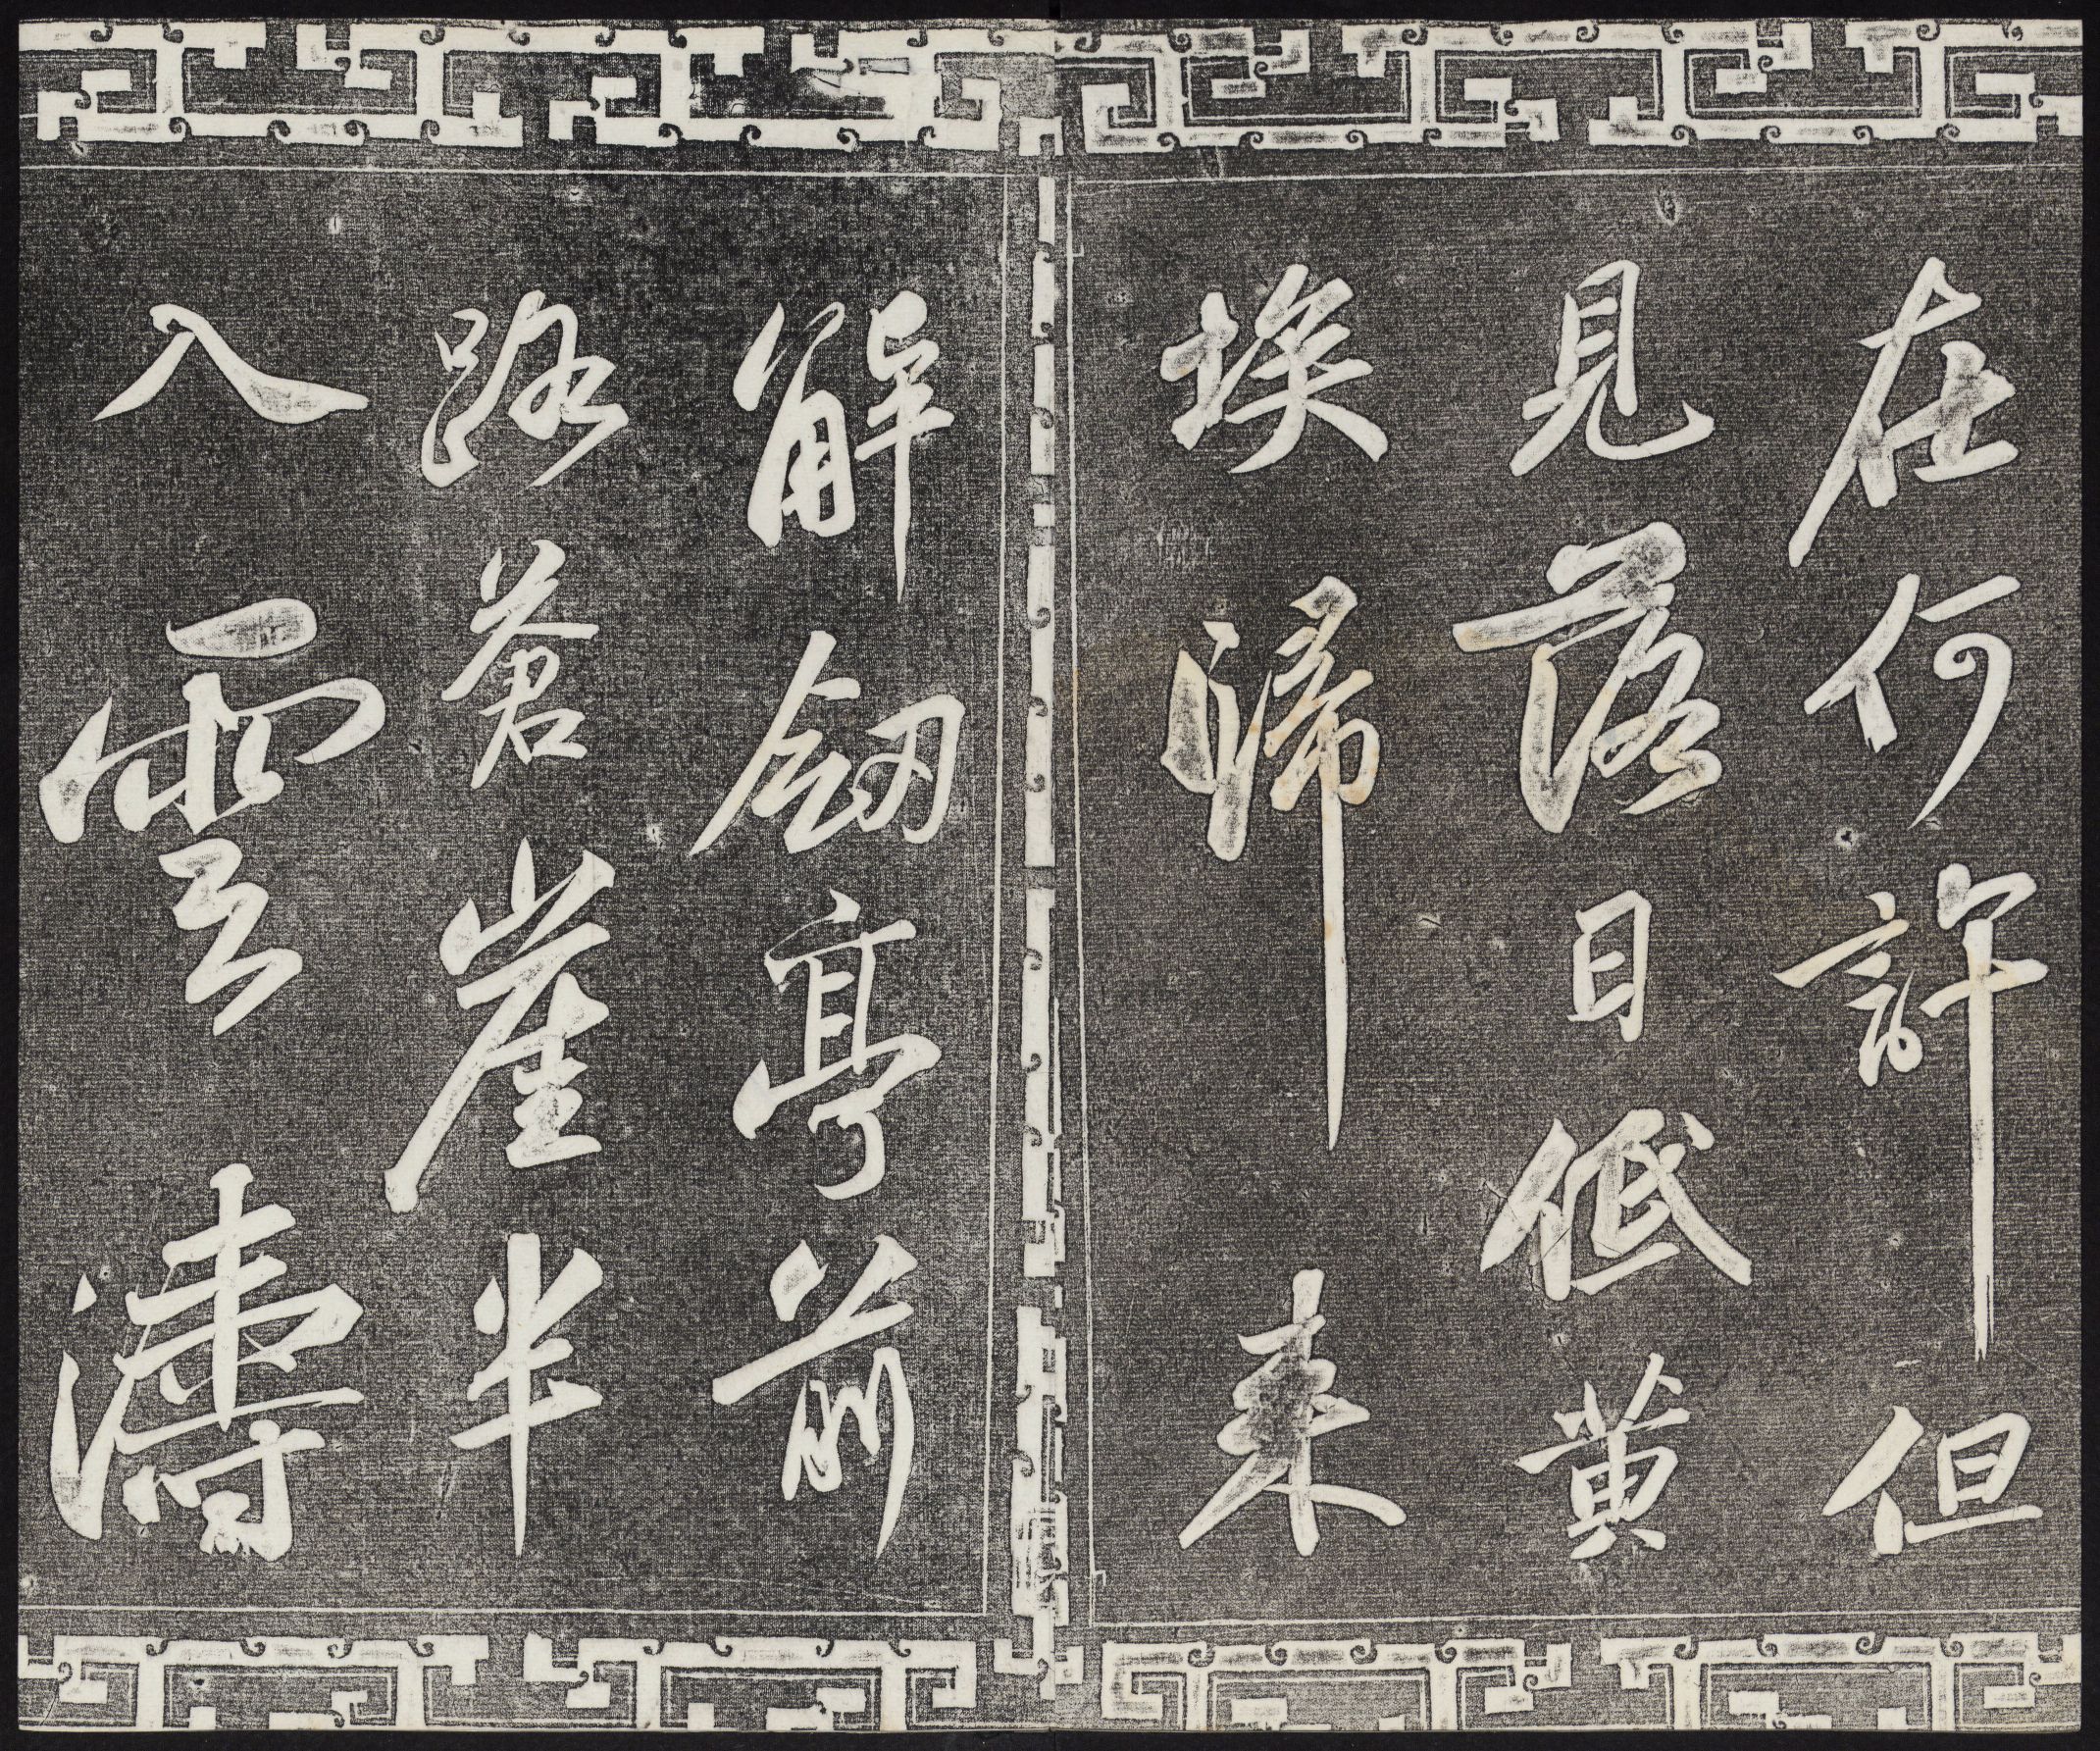 在何許但
見落日低黃
埃歸來
解劒亭前
路蒼崖半
入雲濤